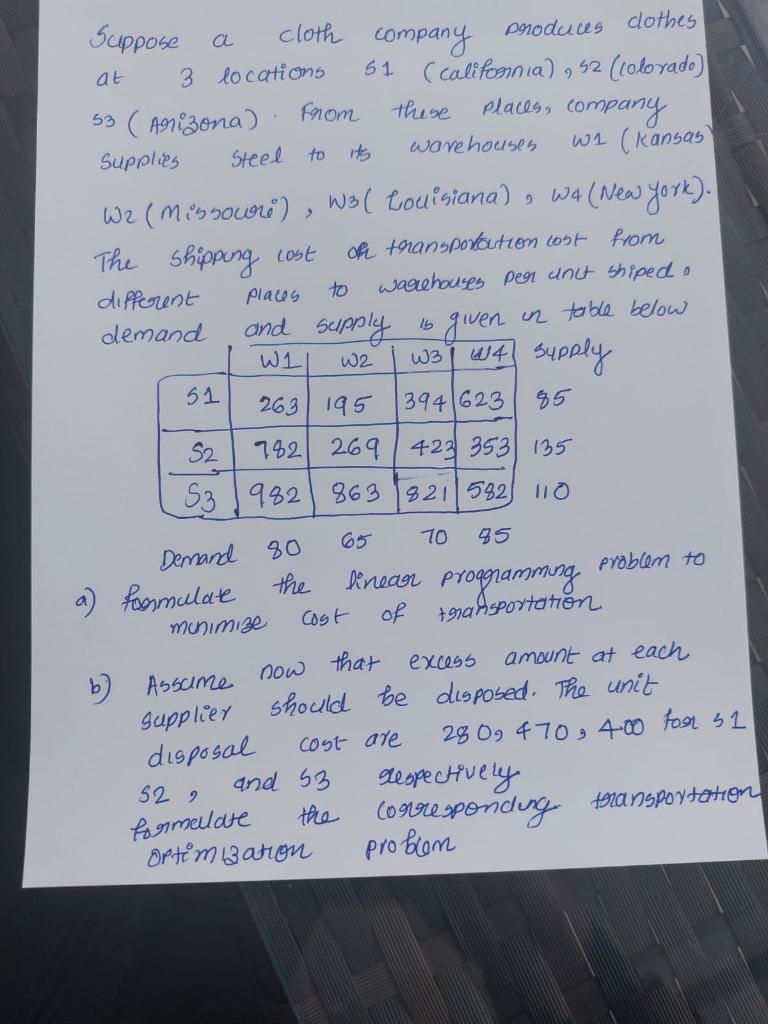 Suppose a cloth company produces clothes
at 3 locations S1 (california), S2 (colorado)
S3 (Arizona). From these places, company
supplies steel to its warehouses W1 (Kansas)
W2 (Missouri), W3( Louisiana), W4 (New York).
The shipping cost or transportation cost from
different places to warehouses per unit shiped,
demand and supply is given in table below
W1 W2 W3 W4 supply
S1 263 195 394 623 85
S2 782 269 423 353 135
S3 982 863 821 582 110
Demand 80 65 70 85
a) formulate the linear programming problem to
minimize cost of transportation
b) Assume now that excess amount at each
supplier should be disposed. The unit
disposal cost are 280, 470, 400 for S1
S2, and S3 respectively
formulate the corresponding transportation
optimization problem